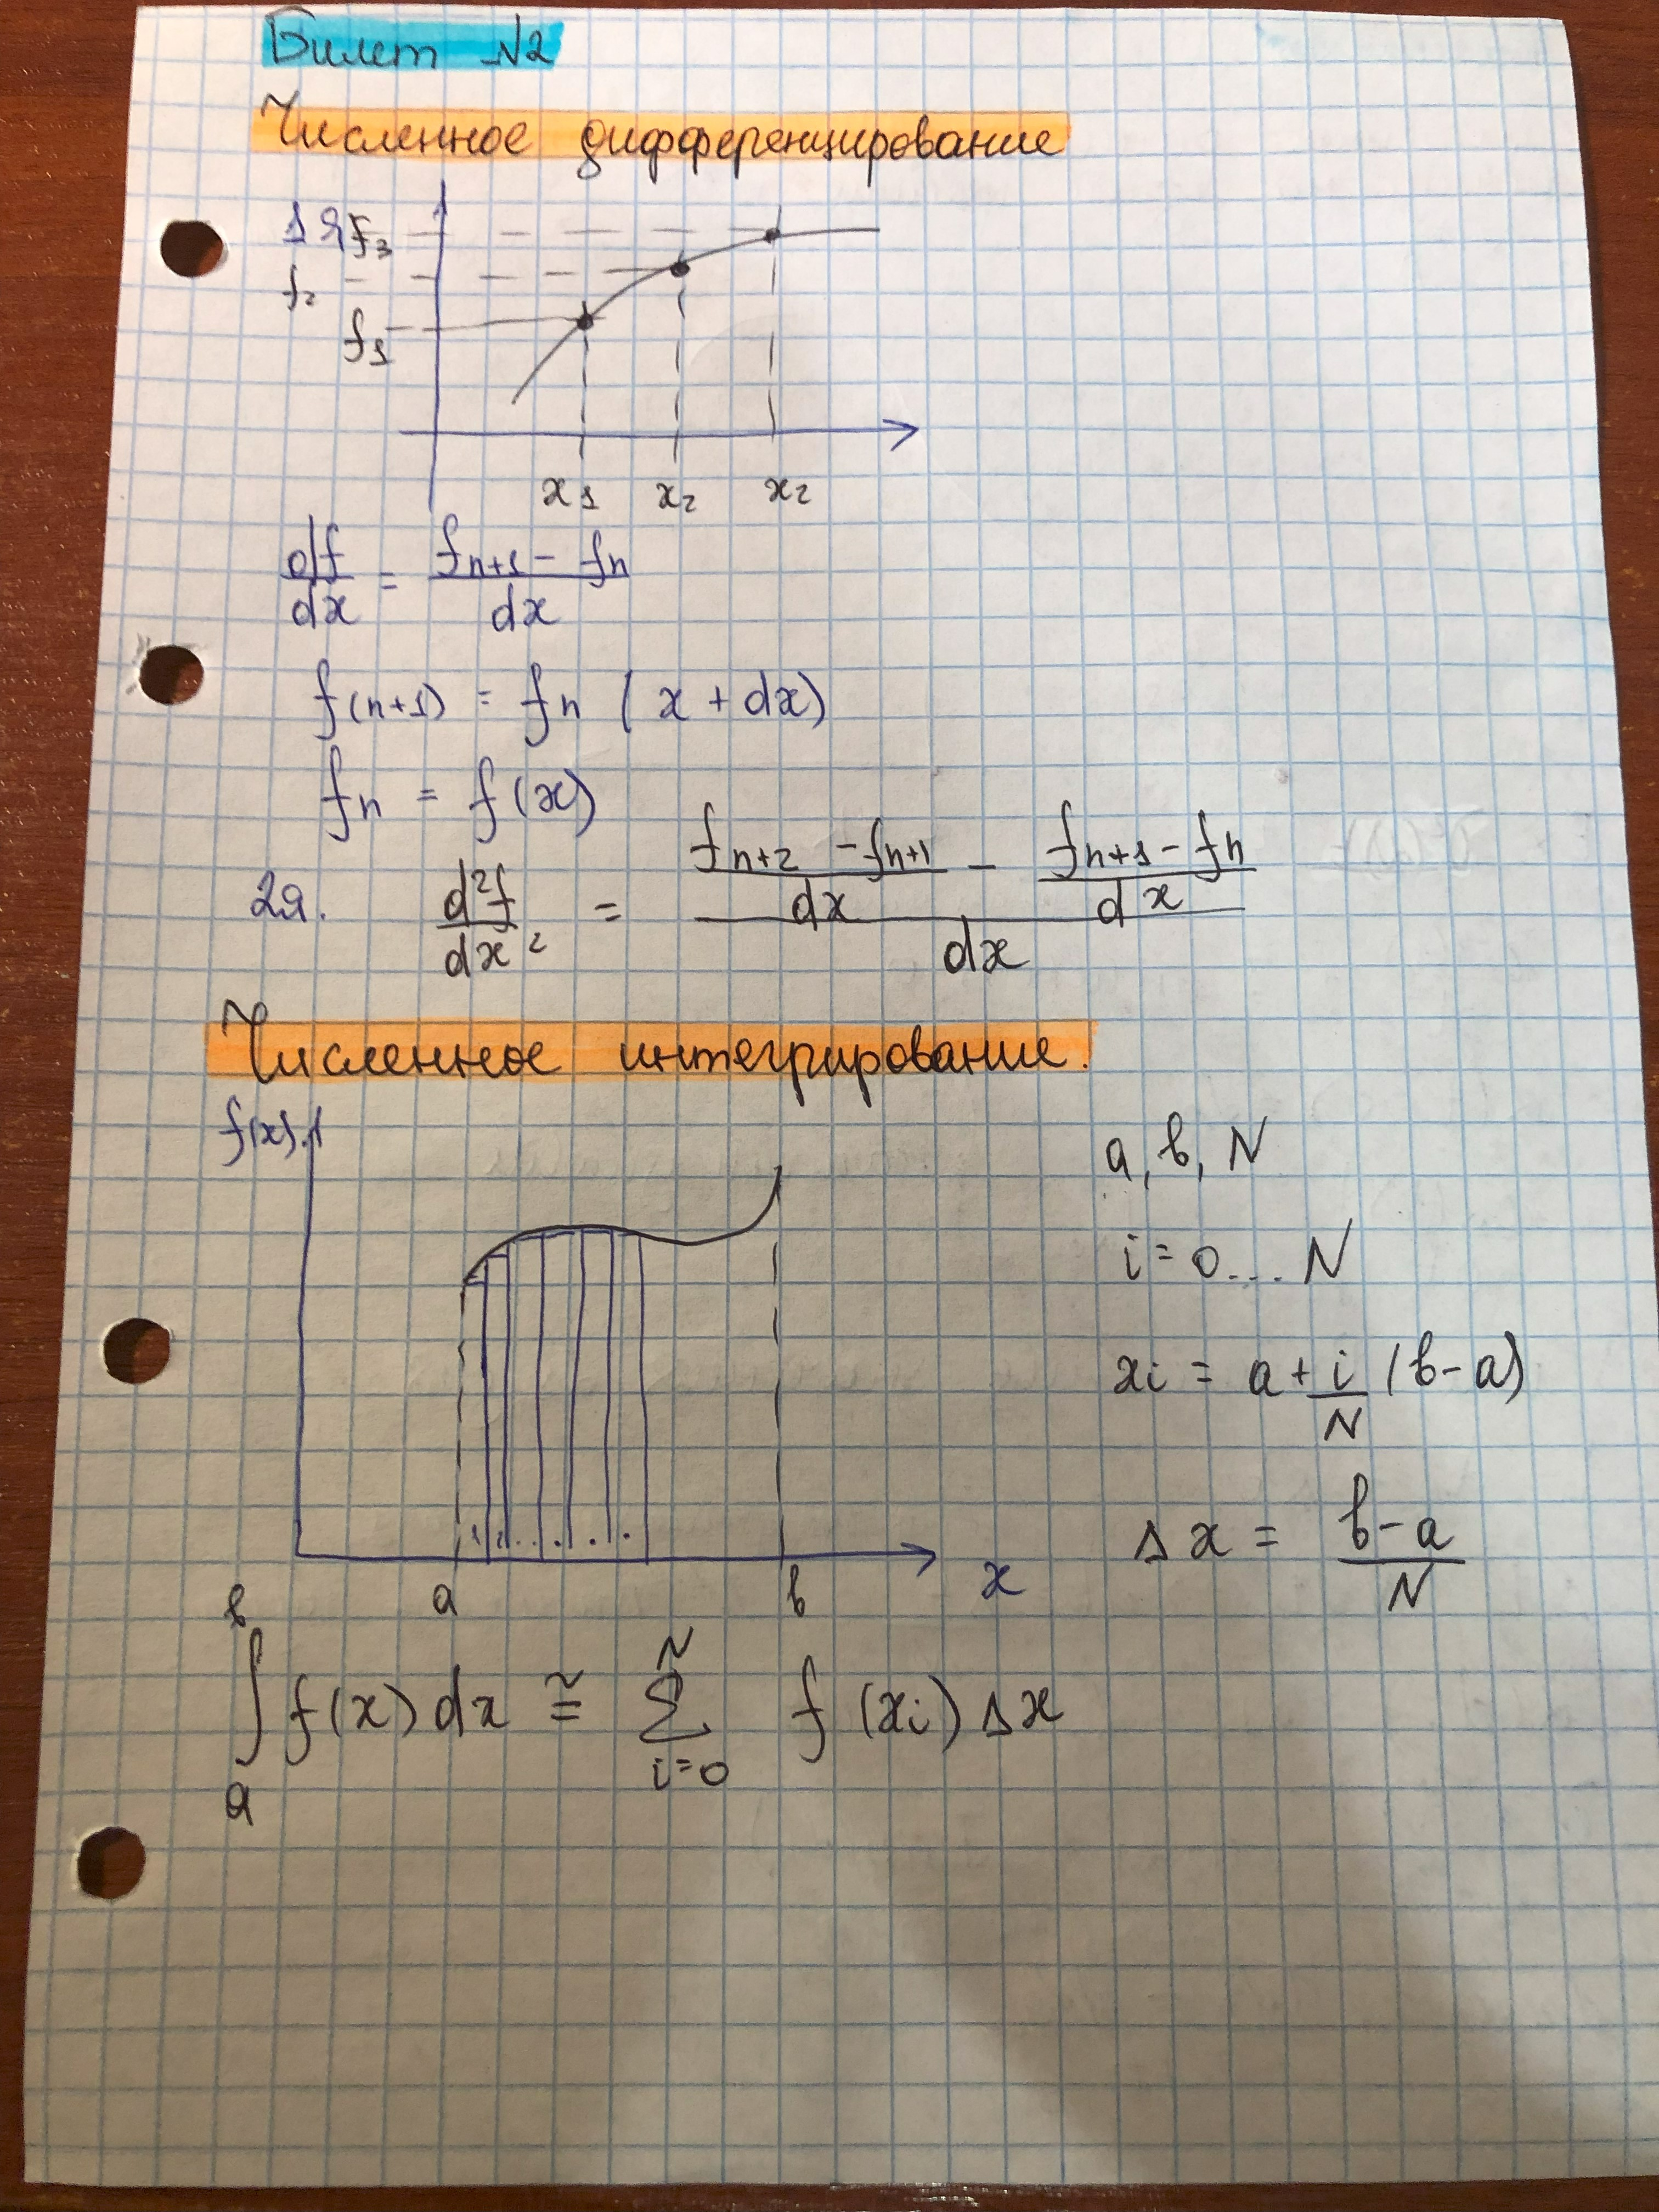 Билет №2
Численное дифференцирование
1я f₃
f₂
f₁
x₁ x₂ x₂
df/dx = (fn+1 - fn)/dx
f(n+1) = fn (x + dx)
fn = f(x)
2я. d²f/dx² = ((fn+2 - fn+1)/dx - (fn+1 - fn)/dx)/dx
Численное интегрирование.
f(x)
a, b, N
i = 0... N
xi = a + i/N (b - a)
Δx = (b - a)/N
a b x
∫ₐᵇ f(x) dx ≅ Σᵢ₌₀ᴺ f(xi) Δx